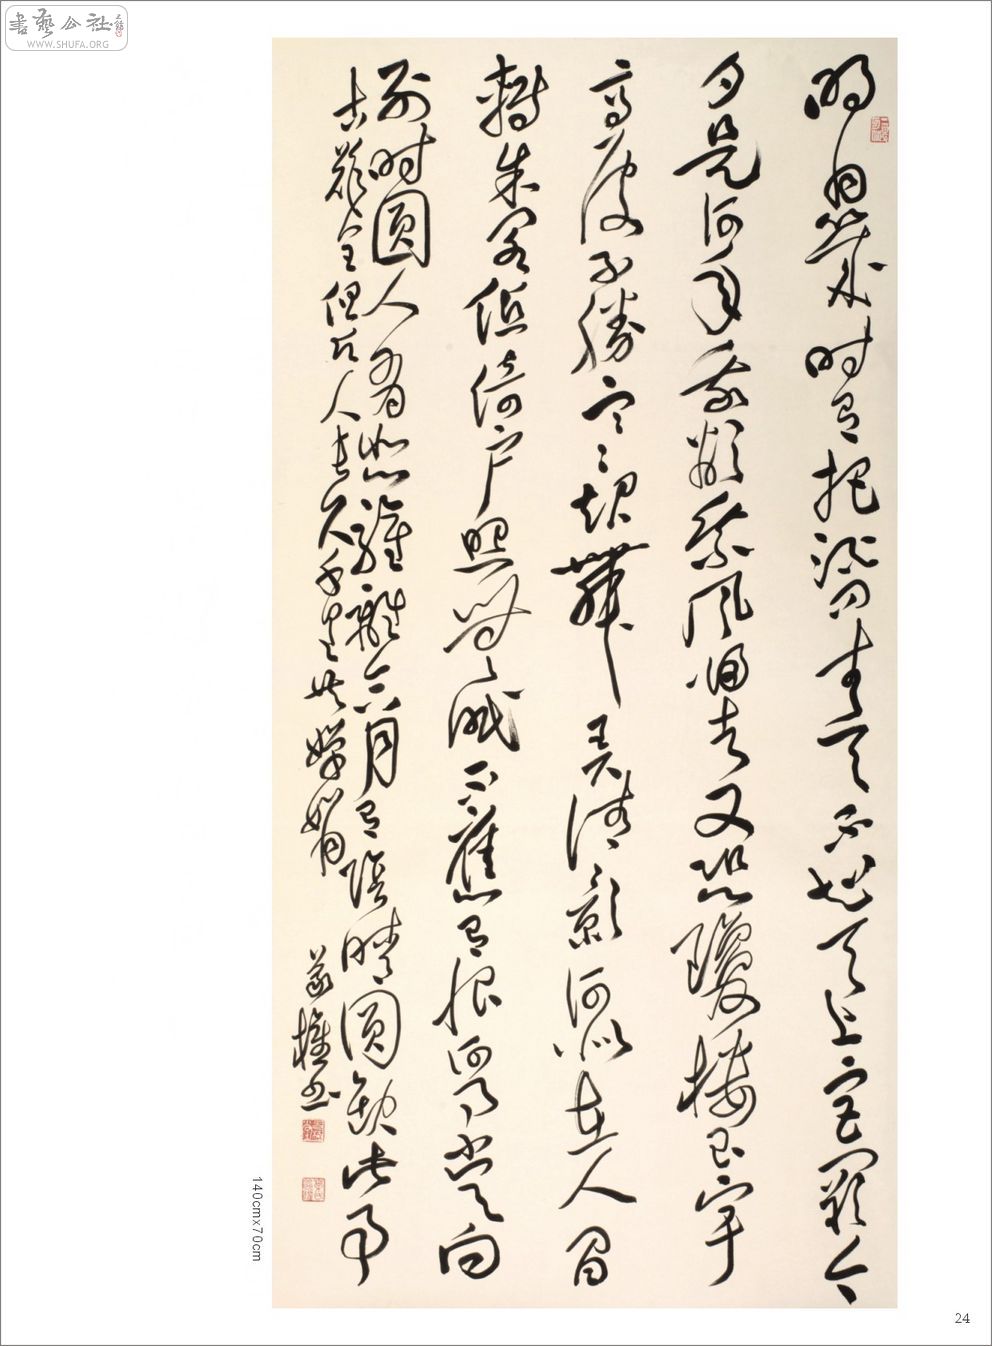 書藝公社
WWW.SHUFA.ORG
明月幾时有把酒問青天不知天上宫闕今
夕是何年我欲乘風歸去又恐瓊樓玉宇
高處不勝寒起舞弄清影何似在人間
轉朱閣低綺户照無眠不應有恨何事長向
别时圆人有悲歡離合月有陰晴圆缺此事
古難全但願人長久千里共嬋娟
140cmx70cm
24